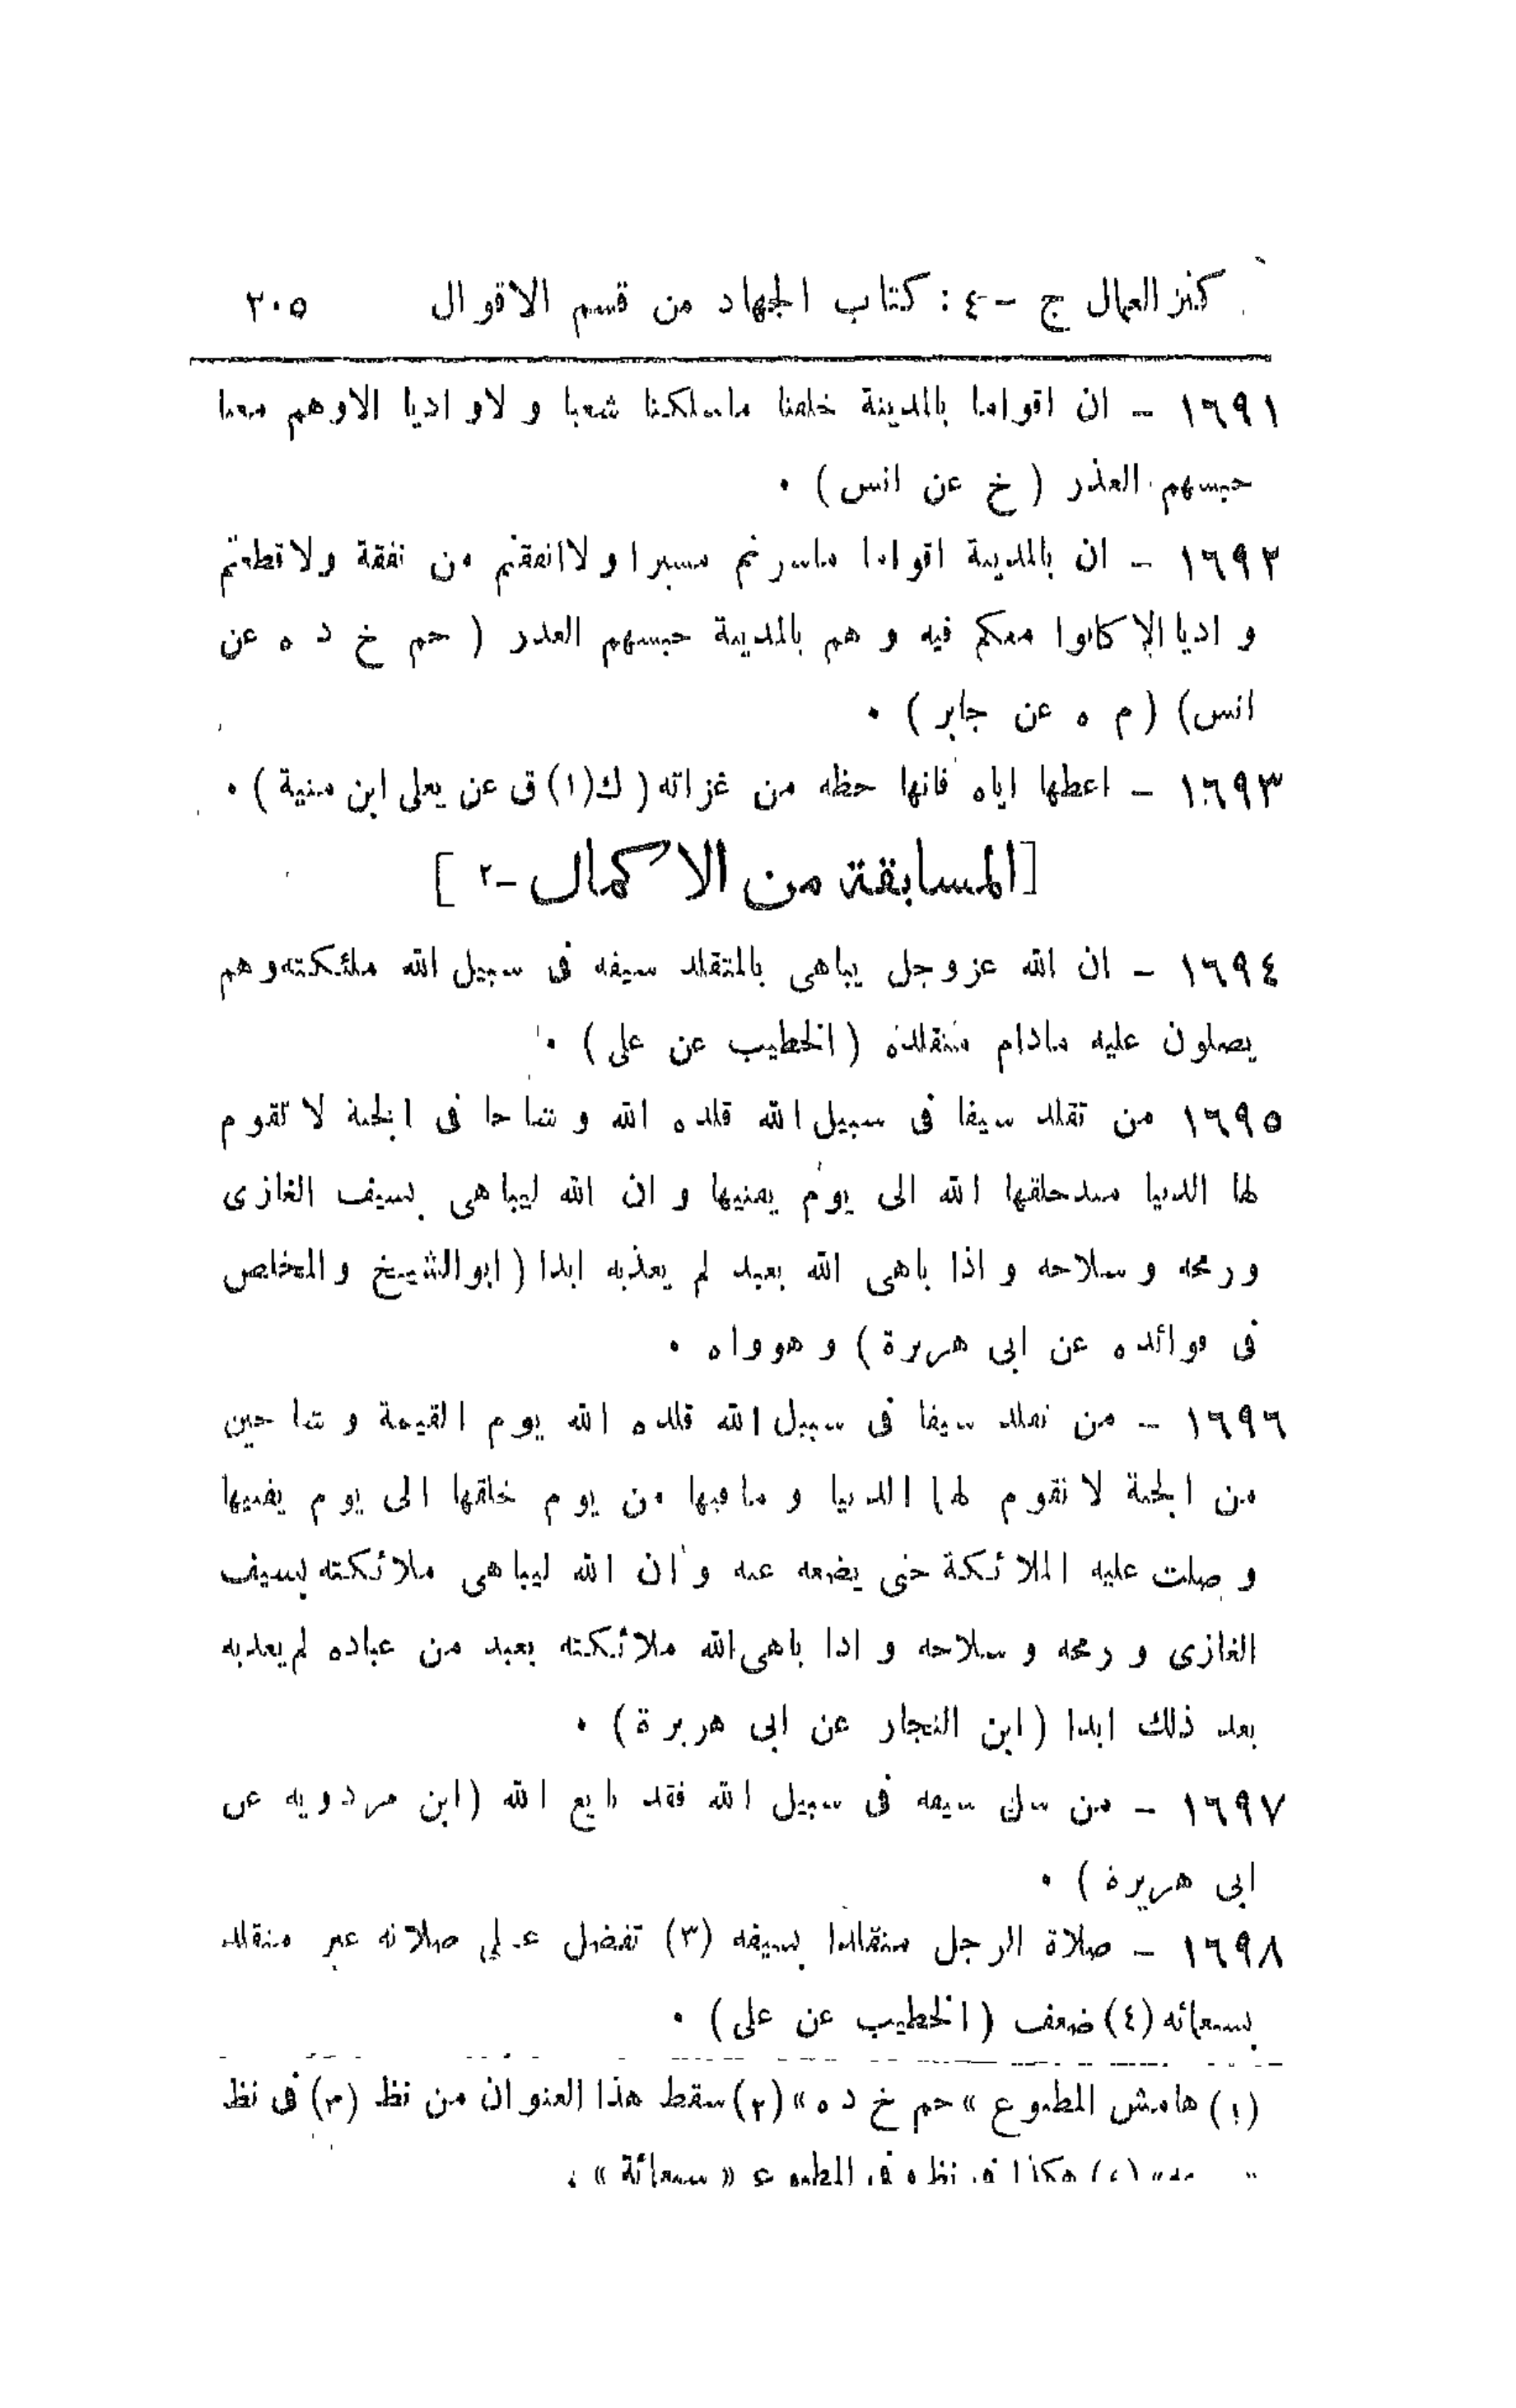 كنز العمال ج -٤ : كتاب الجهاد من قسم الاقوال ٣٠٥
١٦٩١ - ان اقواما بالمدينة خلفنا ماسلكنا شعبا و لاو اديا الاوهم معنا
حبسهم العذر ( خ عن انس ) .
١٦٩٢ - ان بالمدينة اقواما ماسرتم مسيرا و لاانفقتم من نفقة ولاقطعتم
و اديا الا كانوا معكم فيه و هم بالمدينة حبسهم العذر ( حم خ د ه عن
انس) ( م ه عن جابر ) .
١٦٩٣ - اعطها اياه فانها حظه من غزاته ( ك(١) ق عن يعلى ابن منية ) .
[المسابقة من الاكمال -٢ ]
١٦٩٤ - ان الله عز وجل يباهى بالمتقلد سيفه فى سبيل الله ملئكته وهم
يصلون عليه مادام متقلده ( الخطيب عن على ) .
١٦٩٥ من تقلد سيفا فى سبيل الله قلده الله و شاحا فى الجنة لا تقوم
لها الدنيا منذ خلقها الله الى يوم يفنيها و ان الله ليباهى بسيف الغازى
ورمحه و سلاحه و اذا باهى الله بعبد لم يعذبه ابدا ( ابو الشيخ و المخلص
فى فوائده عن ابى هريرة ) و هوواه .
١٦٩٦ - من تقلد سيفا فى سبيل الله قلده الله يوم القيمة و شاحين
من الجنة لا تقوم لها الدنيا و ما فيها من يوم خلقها الى يوم يفنيها
و صلت عليه الملائكة حتى يضعه عنه و ان الله ليباهى ملائكته بسيف
الغازى و رمحه و سلاحه و اذا باهى الله ملائكته بعبد من عباده لم يعذبه
بعد ذلك ابدا ( ابن النجار عن ابى هريرة ) .
١٦٩٧ - من سل سيفه فى سبيل الله فقد بايع الله ( ابن مردويه عن
ابى هريرة ) .
١٦٩٨ - صلاة الرجل متقلدا بسيفه (٣) تفضل على صلاته غير متقلد
بسبعائه (٤) ضعف ( الخطيب عن على ) .
(١) هامش المطبوع » حم خ د ه » (٢) سقط هذا العنوان من نظ (٣) فى نظ
(٤) هكذا فى نظ و فى المطبوع « سبعائة » .